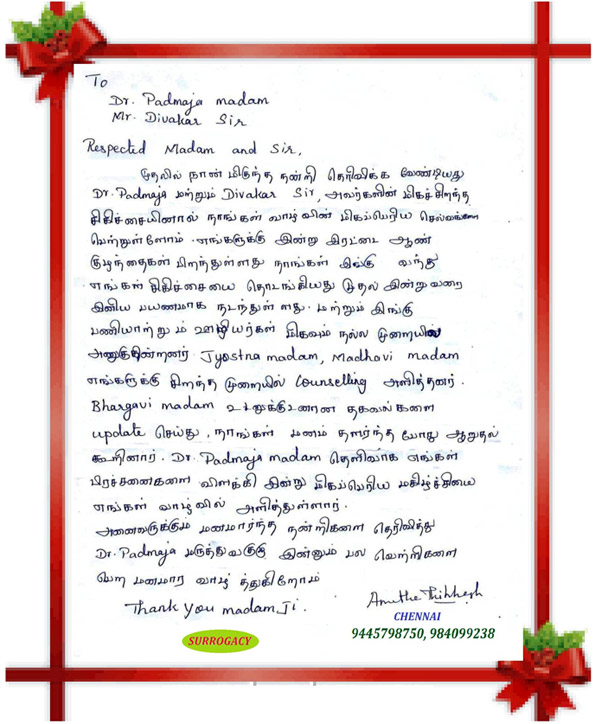 To
Dr. Padmaja madam
Mr. Divakar Sir
Respected Madam and Sir,
முதலில் நான் மிகுந்த நன்றி தெரிவிக்க வேண்டியது
Dr. Padmaja மற்றும் Divakar Sir, அவர்களின் மிகச்சிறந்த
சிகிச்சையினால் நாங்கள் வாழ்வின் மிகப்பெரிய
பெற்றுள்ளோம். எங்களுக்கு இன்று இரட்டை ஆண்
குழந்தைகள் பிறந்துள்ளது நாங்கள் இங்கு வந்து
எங்கள் சிகிச்சையை தொடங்கியது முதல் இன்றுவரை
இனிய பயணமாக நடந்துள்ளது. மற்றும் இங்கு
பணியாற்றும் ஊழியர்கள் மிகவும் நல்ல முறையில்
அணுகுகின்றனர் Jyostna madam, Madhavi madam
எங்களுக்கு சிறந்த முறையில் Counselling அளித்தனர்.
Bhargavi madam உடனுக்குடனான தகவல்களை
update செய்து, நாங்கள் மனம் தளர்ந்த போது ஆறுதல்
கூறினார். Dr. Padmaja madam தெளிவாக எங்கள்
பிரச்சனைகளை விளக்கி இன்று மிகப்பெரிய மகிழ்ச்சியை
எங்கள் வாழ்வில் அளித்துள்ளார்.
அனைவருக்கும் மனமார்ந்த நன்றிகளை தெரிவித்து
Dr. Padmaja மருத்துவருக்கு இன்னும் பல வெற்றிகளை
பெற மனமார வாழ்த்துகிறோம்
Thank you madam Ji.
CHENNAI
SURROGACY
9445798750, 984099238